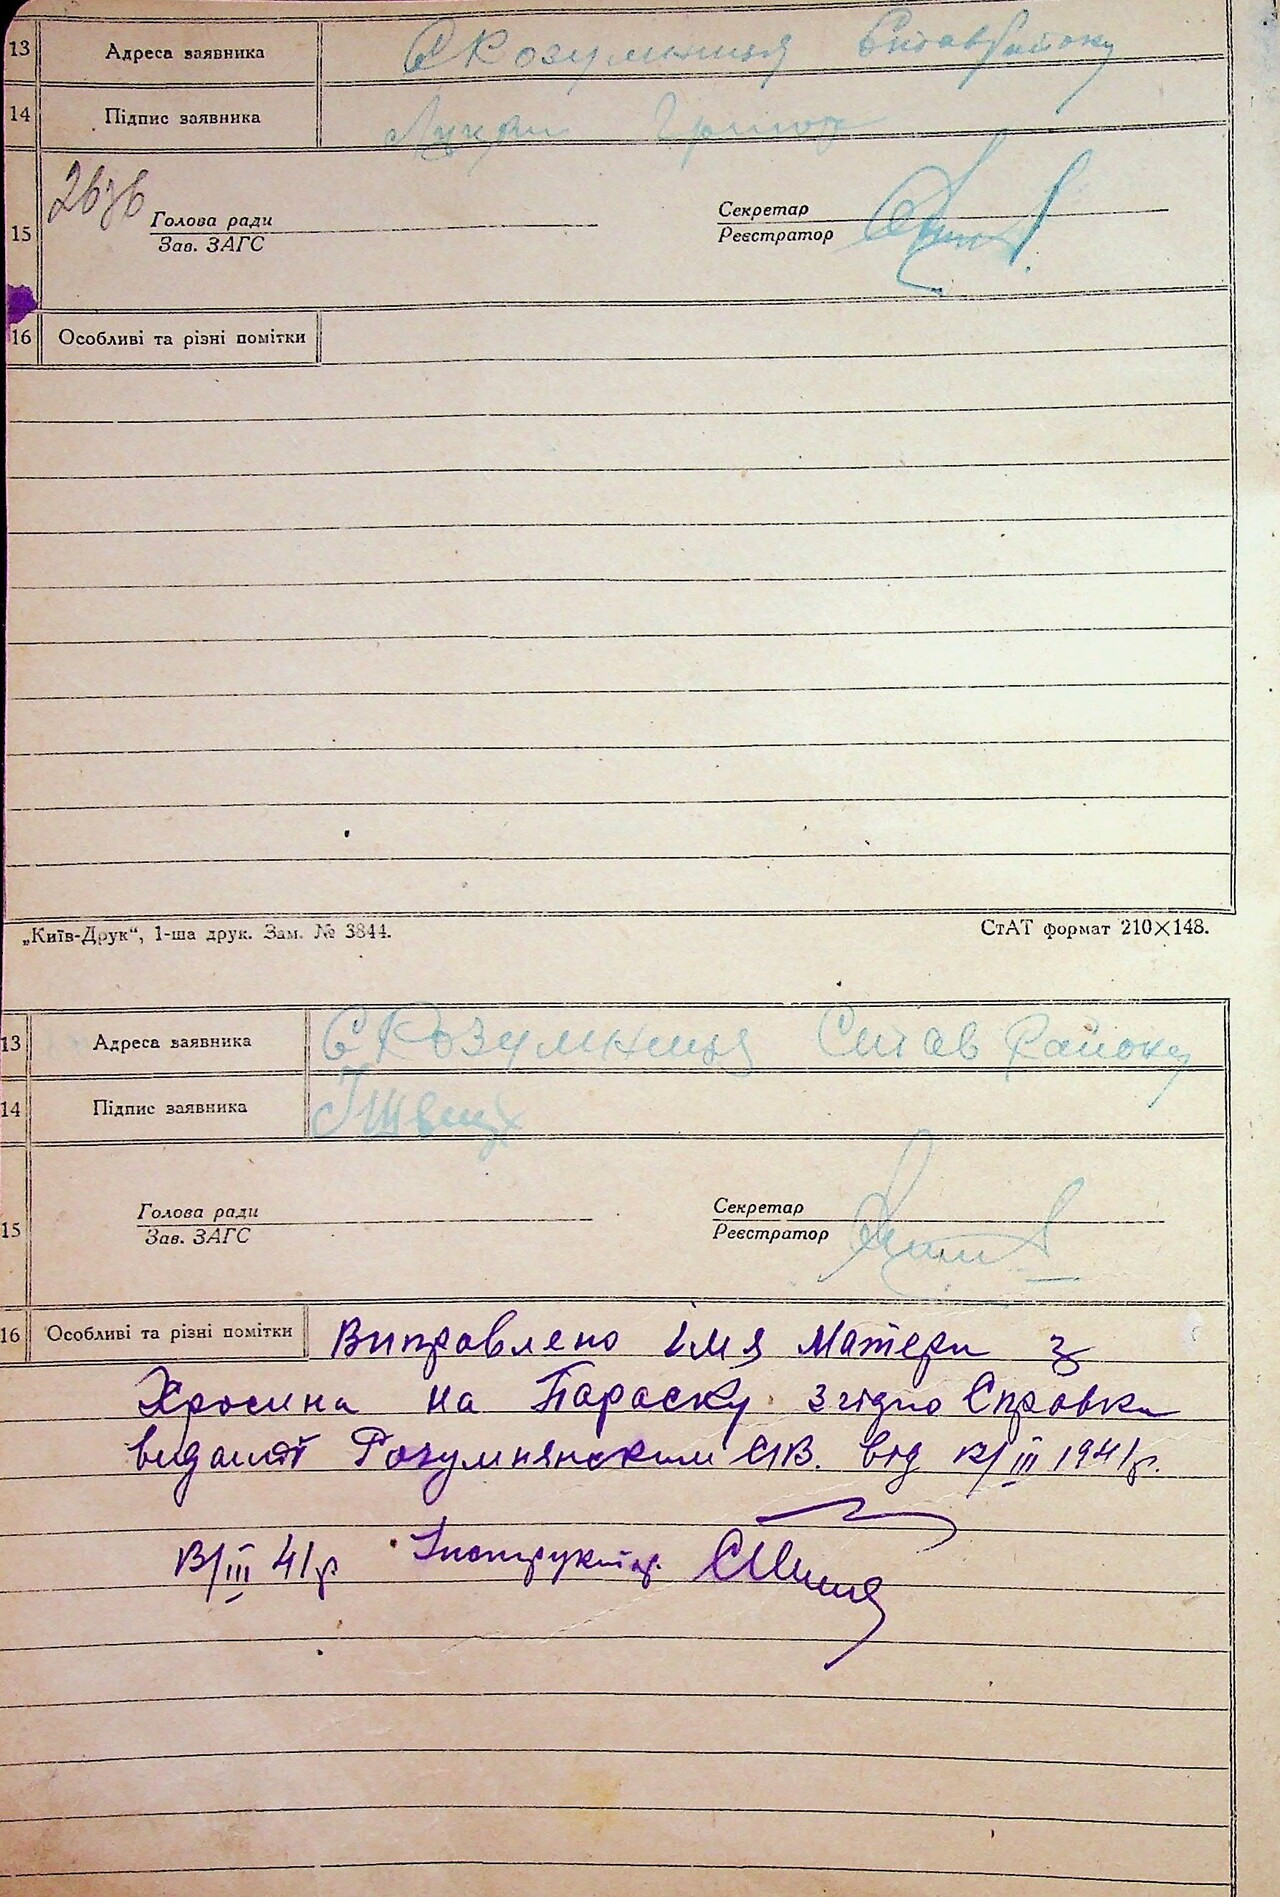 13 Адреса заявника С Розумниця Ставрайону
14 Підпис заявника
15 Голова ради Секретар
Зав. ЗАГС Реєстратор
16 Особливі та різні помітки
„Київ-Друк“, 1-ша друк. Зам. № 3844. СтАТ формат 210×148.
13 Адреса заявника С Розумниця Став Району
14 Підпис заявника
15 Голова ради Секретар
Зав. ЗАГС Реєстратор
16 Особливі та різні помітки Виправлено імя Матери з
Хросина на Параску згідно Справки
виданої Розумнянським С/В. від 12/III 1941р.
12/III 41р Інструктор